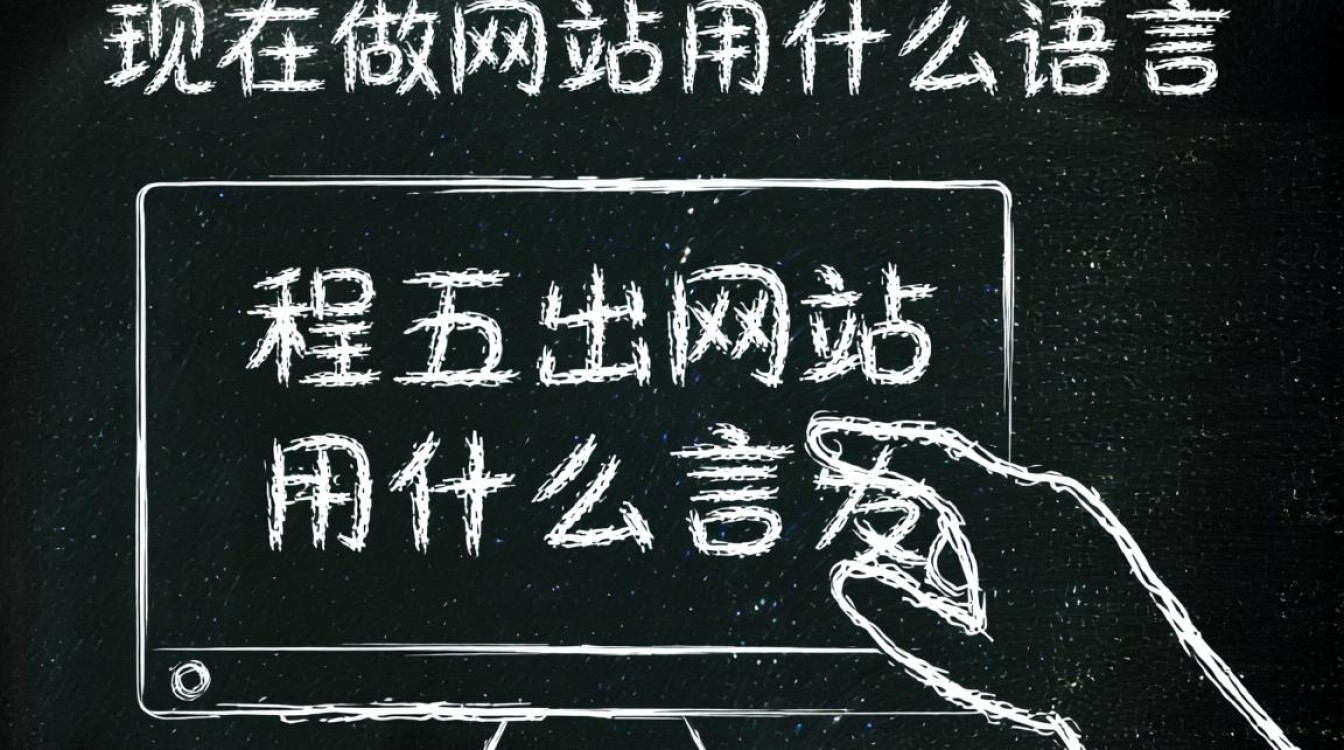 现在做网站用什么语言
程五出网站
用什么言发